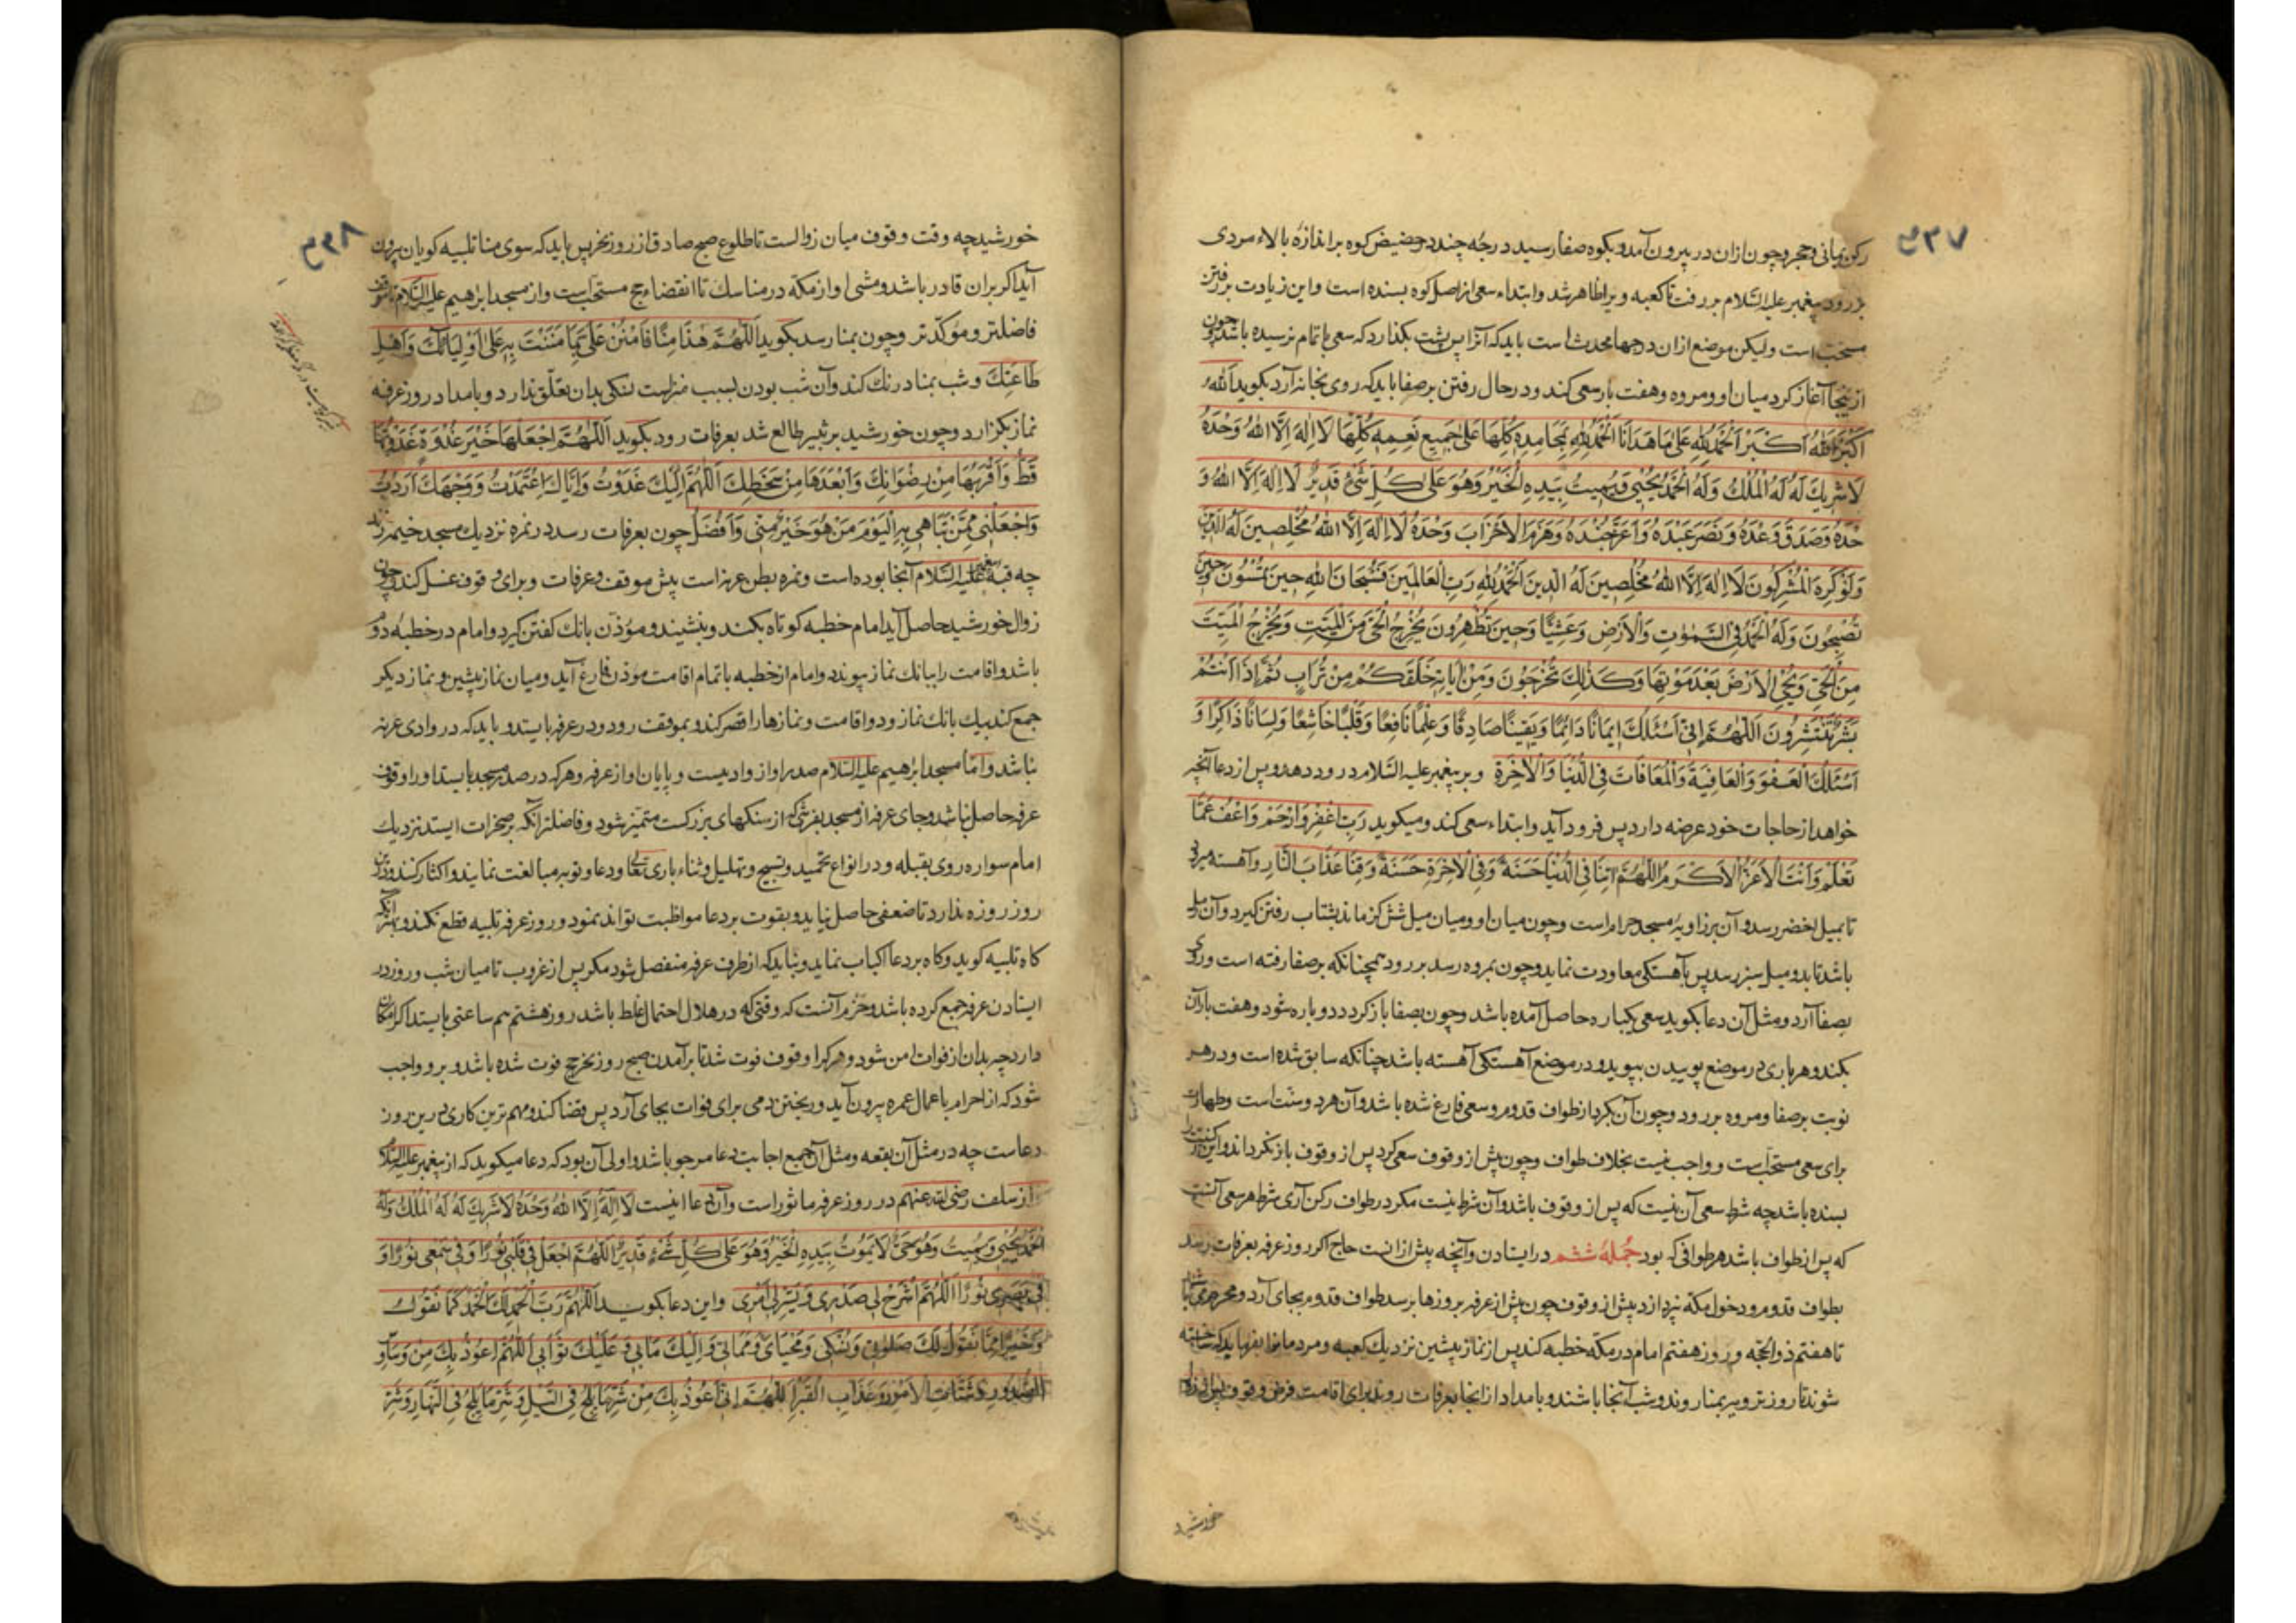 ۴۳۷
ركن يمانى و حجر و چون ازان در بيرون آمد و بكوه صفا رسيد درجهٔ چند در حضيض كوه بر اندازهٔ بالاء مردى
بر رود پيغمبر عليه السّلام بر رفت تا كعبه ويرا ظاهر شد و ابتداء سعى از اصل كوه بسنده است و اين زيادت بر رفتن
مستحبّ است وليكن موضع ازان درجها محدث است بايد كه آنرا پس پشت بگذارد كه سعى با تمام نرسيده باشد و چون
ازينجا آغاز كرد ميان او و مروه و هفت بار سعى كند و در حال رفتن بر صفا بايد كه روى بخانه آرد بگويد اَللّٰهُ
اَكْبَرُ اَللّٰهُ اَكْبَرْ اَلْحَمْدُلِلّٰهِ عَلٰى مَا هَدَانَا اَلْحَمْدُلِلّٰهِ بِمَحَامِدِهِ كُلِّهَا عَلٰى جَمِيعِ نِعَمِهِ كُلِّهَا لَا اِلٰهَ اِلَّا اللّٰهُ وَحْدَهُ
لَا شَرِيكَ لَهُ لَهُ الْمُلْكُ وَلَهُ الْحَمْدُ يُحْيِى وَيُمِيتُ بِيَدِهِ الْخَيْرُ وَهُوَ عَلٰى كُلِّ شَىْءٍ قَدِيرٌ لَا اِلٰهَ اِلَّا اللّٰهُ وَ
حْدَهُ وَصَدَقَ وَعْدَهُ وَنَصَرَ عَبْدَهُ وَاَعَزَّ جُنْدَهُ وَهَزَمَ الْاَحْزَابَ وَحْدَهُ لَا اِلٰهَ اِلَّا اللّٰهُ مُخْلِصِينَ لَهُ الدِّينَ
وَلَوْ كَرِهَ الْمُشْرِكُونَ لَا اِلٰهَ اِلَّا اللّٰهُ مُخْلِصِينَ لَهُ الدِّينَ اَلْحَمْدُلِلّٰهِ رَبِّ الْعَالَمِينَ فَسُبْحَانَ اللّٰهِ حِينَ تُمْسُونَ وَحِينَ
تُصْبِحُونَ وَلَهُ الْحَمْدُ فِى السَّمٰوٰتِ وَالْاَرْضِ وَعَشِيًّا وَحِينَ تُظْهِرُونَ يُخْرِجُ الْحَىَّ مِنَ الْمَيِّتِ وَيُخْرِجُ الْمَيِّتَ
مِنَ الْحَىِّ وَيُحْيِى الْاَرْضَ بَعْدَ مَوْتِهَا وَكَذٰلِكَ تُخْرَجُونَ وَمِنْ اٰيَاتِهِ خَلَقَكُمْ مِنْ تُرَابٍ ثُمَّ اِذَا اَنْتُمْ
بَشَرٌ تَنْتَشِرُونَ اَللّٰهُمَّ اِنِّى اَسْئَلُكَ اِيمَانًا دَائِمًا وَيَقِينًا صَادِقًا وَعِلْمًا نَافِعًا وَقَلْبًا خَاشِعًا وَلِسَانًا ذَاكِرًا وَ
اَسْئَلُكَ الْعَفْوَ وَالْعَافِيَةَ وَالْمُعَافَاتَ فِى الدُّنْيَا وَالْاٰخِرَةِ و بر پيغمبر عليه السّلام درود دهد و پس از دعا آنچه
خواهد از حاجات خود عرضه دارد پس فرود آيد و ابتداء سعى كند و ميگويد رَبِّ اغْفِرْ وَارْحَمْ وَاعْفُ عَمَّا
تَعْلَمُ وَاَنْتَ الْاَعَزُّ الْاَكْرَمُ اَللّٰهُمَّ اٰتِنَا فِى الدُّنْيَا حَسَنَةً وَفِى الْاٰخِرَةِ حَسَنَةً وَقِنَا عَذَابَ النَّارِ و آهسته ميرود
تا بميل اخضر رسد و آن بر زاويهٔ مسجد حرام است و چون ميان او و ميان ميل شش گز ماند بشتاب رفتن گيرد و آن
باشد تا بدو ميل سبز رسد پس بآهستگى معاودت نمايد و چون بمروه رسد بر رود همچنانكه بر صفا رفته است و روى
بصفا آرد و مثل آن دعا بگويد سعى يكباره حاصل آمده باشد و چون بصفا باز گردد دوباره شود و هفت بار آن
بكند و هر بارى در موضع پوييدن بپويد و در موضع آهستگى آهسته باشد چنانكه سابق شده است و در هر
نوبت بر صفا و مروه بر رود و چون آن بكرد از طواف قدوم و سعى فارغ شده باشد و آن هر دو سنّت است و طهارت
براى سعى مستحبّ است و واجب نيست بخلاف طواف و چون پيش از وقوف سعى كرد پس از وقوف باز نگرداند و اين
بسنده باشد چه شرط سعى آن نيست كه پس از وقوف باشد و آن شرط نيست مگر در طواف ركن آرى شرط هر سعى آنست
كه پس از طواف باشد هر طوافى كه بود جُملهٔ ششم در ايستادن و آنچه پيش از انست حاج اگر روز عرفه بعرفات رسد
بطواف قدوم و دخول مكّه نپردازد پيش از وقوف و چون پيش از عرفه بروزها برسد طواف قدوم بجاى آرد و محرم
تا هفتم ذوالحجّه و روز هفتم امام در مكّه خطبه كند پس از نماز پيشين نزديك كعبه و مردمانرا بفرمايد كه ساخته
شوند تا روز ترويه بمنا روند و شب آنجا باشند و بامداد از انجا بعرفات روند براى اقامت فرض وقوف پس از زوال
خورشيد
۴۳۸
خورشيد چه وقت وقوف ميان زوالست تا طلوع صبح صادق از روز نحر پس بايد كه سوى منا تلبيه گويان بيرون
آيد اگر بران قادر باشد و مشى او از مكّه در مناسك تا انقضاء حج مستحبّ است و از مسجد ابرٰهيم عليه السّلام تا موقف
فاضلتر و موكّدتر و چون بمنا رسد بگويد اَللّٰهُمَّ هٰذَا مِنًا فَامْنُنْ عَلَىَّ بِمَا مَنَنْتَ بِهِ عَلٰى اَوْلِيَائِكَ وَاَهْلِ
طَاعَتِكَ و شب بمنا درنك كند و آن شب بودن بسبب منزلست نسكى بدان تعلّق ندارد و بامداد روز عرفه
نماز بگزارد و چون خورشيد بر ثبير طالع شد بعرفات رود بگويد اَللّٰهُمَّ اجْعَلْهَا خَيْرَ غَدْوَةٍ غَدَوْتُهَا
قَطُّ وَاَقْرَبَهَا مِنْ رِضْوَانِكَ وَاَبْعَدَهَا مِنْ سَخَطِكَ اَللّٰهُمَّ اِلَيْكَ غَدَوْتُ وَاِيَّاكَ اعْتَمَدْتُ وَوَجْهَكَ اَرَدْتُ
وَاجْعَلْنِى مِمَّنْ تُبَاهِى بِهِ الْيَوْمَ مَنْ هُوَ خَيْرٌ مِنِّى وَاَفْضَلُ چون بعرفات رسد در نمره نزديك مسجد خيمه زند
چه قبّهٔ پيغمبر عليه السّلام آنجا بوده است و نمره بطن عرنه است پيش موقف و عرفات و براى وقوف غسل كند و چون
زوال خورشيد حاصل آيد امام خطبه كوتاه بكند و بنشيند و مؤذن بانك گفتن گيرد و امام در خطبهٔ دوّم
باشد و اقامت را ببانك نماز پيوندد و امام از خطبه با تمام اقامت موذن فارغ آيد و ميان نماز پيشين و نماز ديگر
جمع كند بيك بانك نماز و دو اقامت و نمازها را قصر كند و بموقف رود و در عرفه بايستد و بايد كه در وادى عرنه
نباشد و امّا مسجد ابرٰهيم عليه السّلام صدر او از واديست و پايان او از عرفه و هر كه در صدر مسجد بايستد او را وقوف
عرفه حاصل نباشد و جاى عرفه از مسجد بفرشى كه از سنگهاى بزرگست متميّز شود و فاضلتر آنكه بر صخرات ايستد نزديك
امام سواره روى بقبله و در انواع تحميد و تسبيح و تهليل و ثناء بارى تعالى و دعا و توبه مبالغت نمايند و اكثار كنند و درين
روز روزه ندارد تا ضعفى حاصل نيايد و بقوت بر دعا مواظبت تواند نمود و روز عرفه تلبيه قطع نكند و بهتر آنكه
گاه تلبيه گويد و گاه بر دعا اكباب نمايد و نبايد كه از طرف عرفه منفصل شود مگر پس از غروب تا ميان شب و روز در
ايستادن عرفه جمع كرده باشد و حزم آنست كه وقتى كه در هلال احتمال غلط باشد روز هشتم هم ساعتى بايستد اگر امكان
دارد چه بدان از فوات امن شود و هر كرا وقوف فوت شد تا برآمدن صبح روز نحر حج فوت شده باشد و بر و واجب
شود كه از احرام باعمال عمره بيرون آيد و ريختن دمى براى فوات بجاى آرد پس قضا كند و مهم ترين كارى درين روز
دعاست چه در مثل آن بقعه و مثل آن جمع اجابت دعا مرجو باشد و اولى آن بود كه دعا ميگويد كه از پيغمبر عليه السّلام
و از سلف رضى الله عنهم در روز عرفه ماثور است و آن دعا اينست لَا اِلٰهَ اِلَّا اللّٰهُ وَحْدَهُ لَا شَرِيكَ لَهُ لَهُ الْمُلْكُ وَلَهُ
الْحَمْدُ يُحْيِى وَيُمِيتُ وَهُوَ حَىٌّ لَا يَمُوتُ بِيَدِهِ الْخَيْرُ وَهُوَ عَلٰى كُلِّ شَىْءٍ قَدِيرٌ اَللّٰهُمَّ اجْعَلْ فِى قَلْبِى نُورًا وَفِى سَمْعِى نُورًا وَ
فِى بَصَرِى نُورًا اَللّٰهُمَّ اشْرَحْ لِى صَدْرِى وَيَسِّرْلِى اَمْرِى و اين دعا بگويد اَللّٰهُمَّ رَبَّ الْحَمْدِ لَكَ الْحَمْدُ كَمَا نَقُولُ
وَخَيْرًا مِمَّا نَقُولُ لَكَ صَلٰوتِى وَنُسُكِى وَمَحْيَاىَ وَمَمَاتِى وَاِلَيْكَ مَاٰبِى وَعَلَيْكَ ثَوَابِى اَللّٰهُمَّ اَعُوذُ بِكَ مِنْ وَسَاوِ
الصُّدُورِ وَشَتَاتِ الْاَمْرِ وَعَذَابِ الْقَبْرِ اَللّٰهُمَّ اِنِّى اَعُوذُ بِكَ مِنْ شَرِّ مَا يَلِجُ فِى اللَّيْلِ وَشَرِّ مَا يَلِجُ فِى النَّهَارِ وَشَرِّ